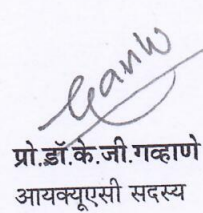 प्रो.डॉ.के.जी.गव्हाणे
आयक्यूएसी सदस्य